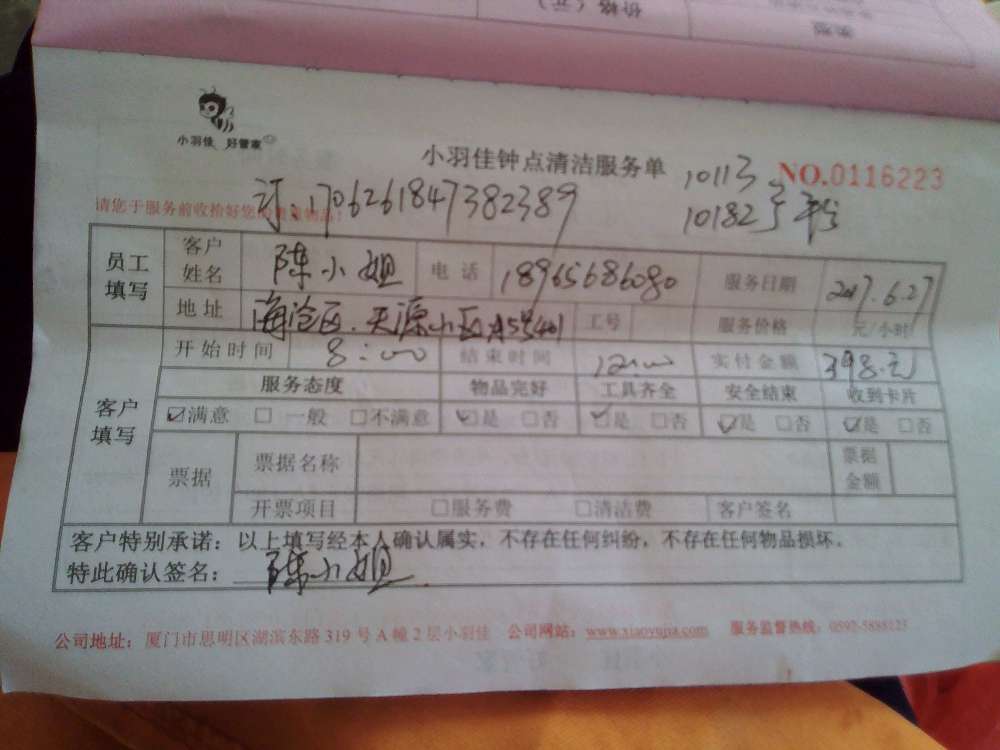 价格（元）
类型
小羽佳 好管家
小羽佳钟点清洁服务单
10113
NO.0116223
订:1706261847382389
10182
请您于服务前收拾好您的贵重物品!
员工填写 客户姓名 陈小姐 电话 18965686080 服务日期 2017.6.27
地址 海沧区.天源小区 工号 服务价格 元/小时
客户填写 开始时间 8:00 结束时间 12:00 实付金额 398.元
服务态度 物品完好 工具齐全 安全结束 收到卡片
☑满意 □一般 □不满意 ☑是 □否 ☑是 □否 ☑是 □否 ☑是 □否
票据 票据名称 票据金额
开票项目 □服务费 □清洁费 客户签名
客户特别承诺：以上填写经本人确认属实，不存在任何纠纷，不存在任何物品损坏。
特此确认签名：陈小姐
公司地址：厦门市思明区湖滨东路319号A幢2层小羽佳 公司网站：www.xiaoyujia.com 服务监督热线：